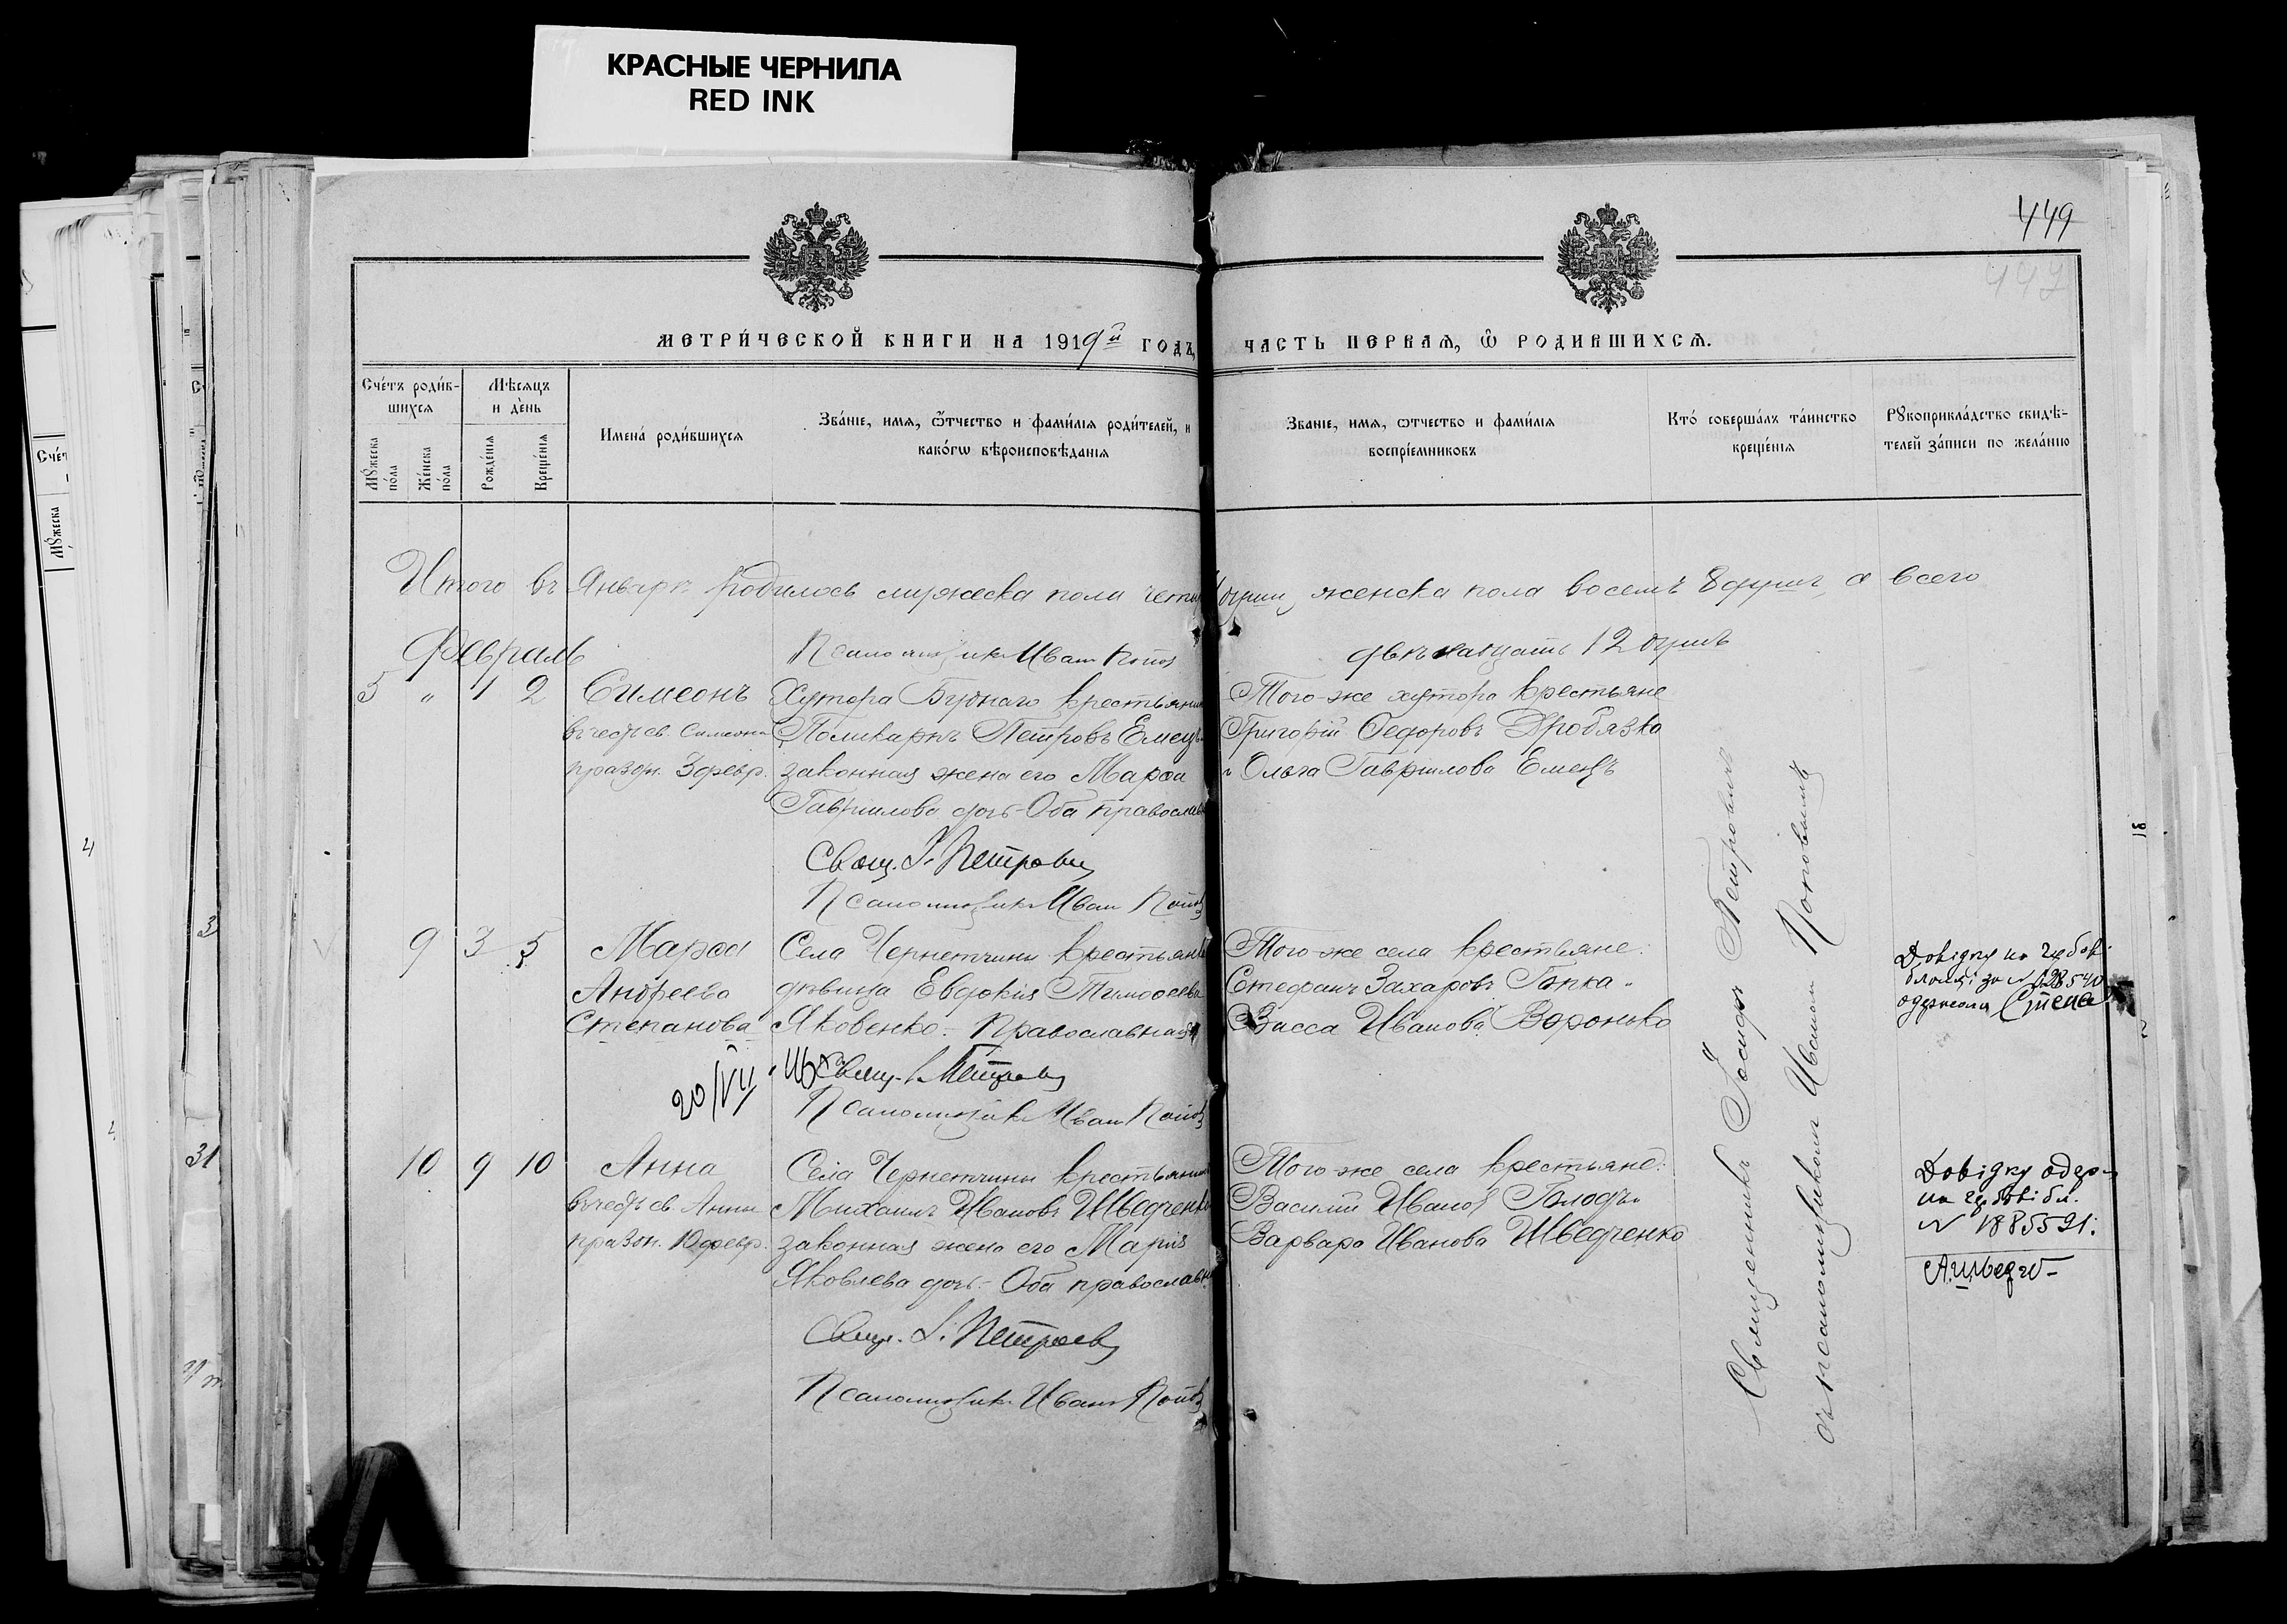 КРАСНЫЕ ЧЕРНИЛА
RED INK
449
447
МЕТРИ́ЧЕСКОЙ КНИГИ НА 1919й ГОДЪ, ЧАСТЬ ПЕРВАЯ, Ѡ РОДИВШИХСЯ.
Сче́тъ роди́в-
шихся
Мѣсяцъ
и де́нь
Мꙋ́жеска по́ла
Же́нска по́ла
Рожде́нія
Креще́нія
Имена́ роди́вшихся
Зва́ніе, имя, ѿтчество и фами́лія роди́телей, и
како́гѡ вѣроисповѣ́данія
Зва́ніе, имя, ѡтчество и фами́лія
воспріе́мниковъ
Кто́ соверша́лъ та́инство
креще́нія
Рꙋкоприкла́дство свидѣ-
телей за́писи по жела́нію
Итого въ Январѣ родилось мужеска пола четыре души, женска пола восемь 8 душъ, а всего
двѣнадцать 12 душъ
Февраль
Псаломщикъ Иван Попов
5 " 1 2
Симеонъ
въ честь св. Симеона
праздн. 3 февр.
Хутора Бурнаго крестьянин
Поликарпъ Петровъ Емецъ
законная жена его Марѳа
Гавриилова дочь - Оба православн
Свящ. І. Петрович
Псаломщикъ Иван Попов
Того-же хутора крестьяне
Григорій Ѳедоровъ Дробязко
и Ольга Гавриилова Емецъ
9 3 5
Марѳа
Андреева
Степанова
20/VII
Села Чернетчины крестьянка
дѣвица Евдокія Тимоѳеева
Яковенко. Православная
Свящ. І. Петрович
Псаломщикъ Иван Попов
Того-же села крестьяне:
Стефанъ Захаровъ Гапка.
Васса Иванова Воронько
Довідку на гербов.
бланці за №
одержала
10 9 10
Анна
въ честь св. Анны
праздн. 10 февр.
Села Чернетчины крестьянин
Михаилъ Ивановъ Шведченко
законная жена его Марія
Яковлева дочь. - Оба православн
Свящ. І. Петрович
Псаломщикъ Иванъ Попов
Того-же села крестьяне:
Василій Иванов Голодъ.
Варвара Иванова Шведченко
Довідку одер-
на гербові бл.
№ 1885591.
Священникъ Іосифъ Петровичъ
съ псаломщикомъ Иваномъ Поповымъ
Сче́т
Мꙋ́жеска
4
3
31